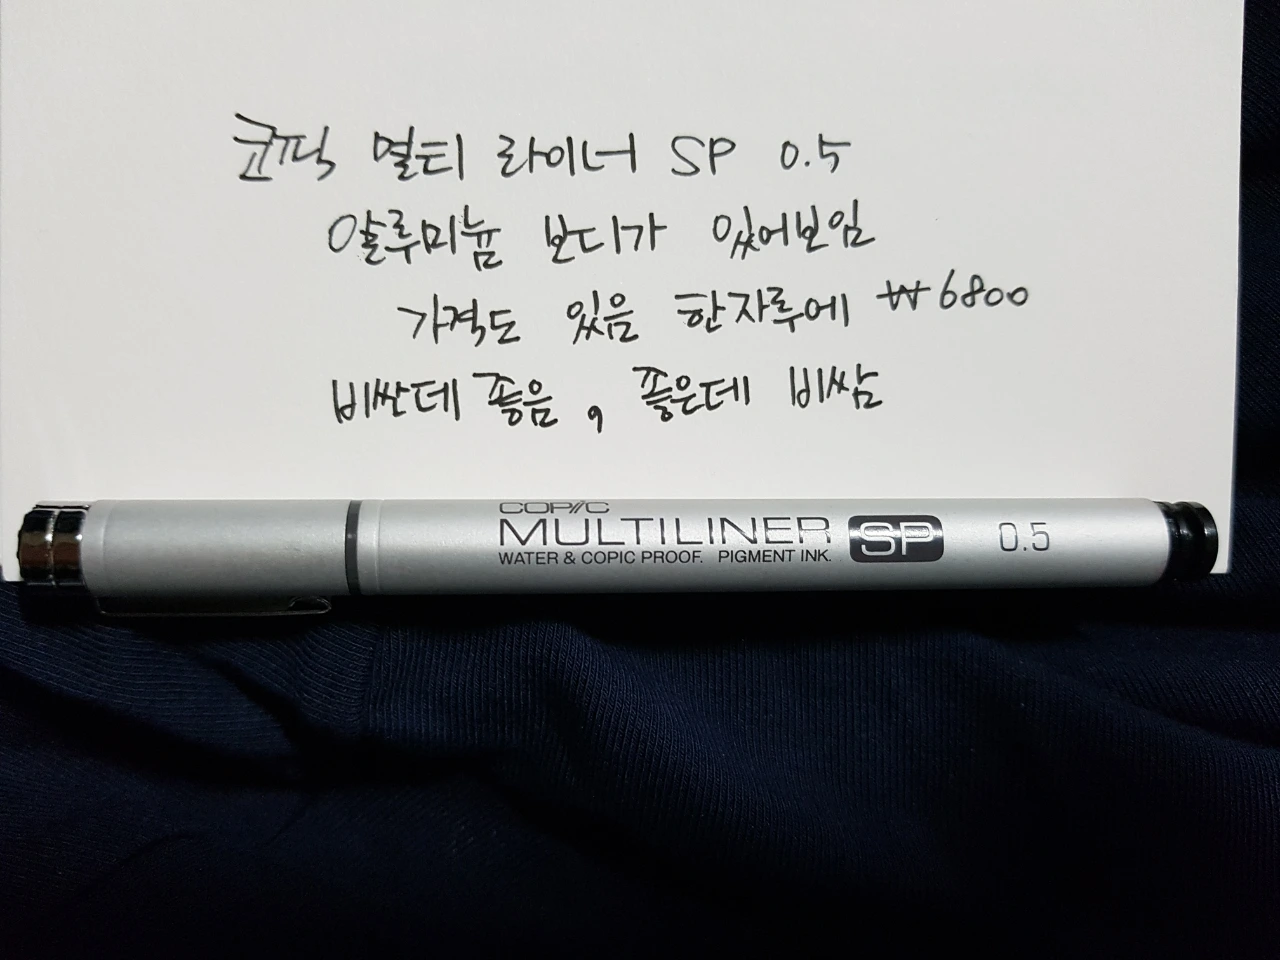 코픽 멀티 라이너 SP 0.5
알루미늄 보디가 있어보임
가격도 있음 한자루에 ₩6800
비싼데 좋음, 좋은데 비쌈
COPIC
MULTILINER SP 0.5
WATER & COPIC PROOF. PIGMENT INK.